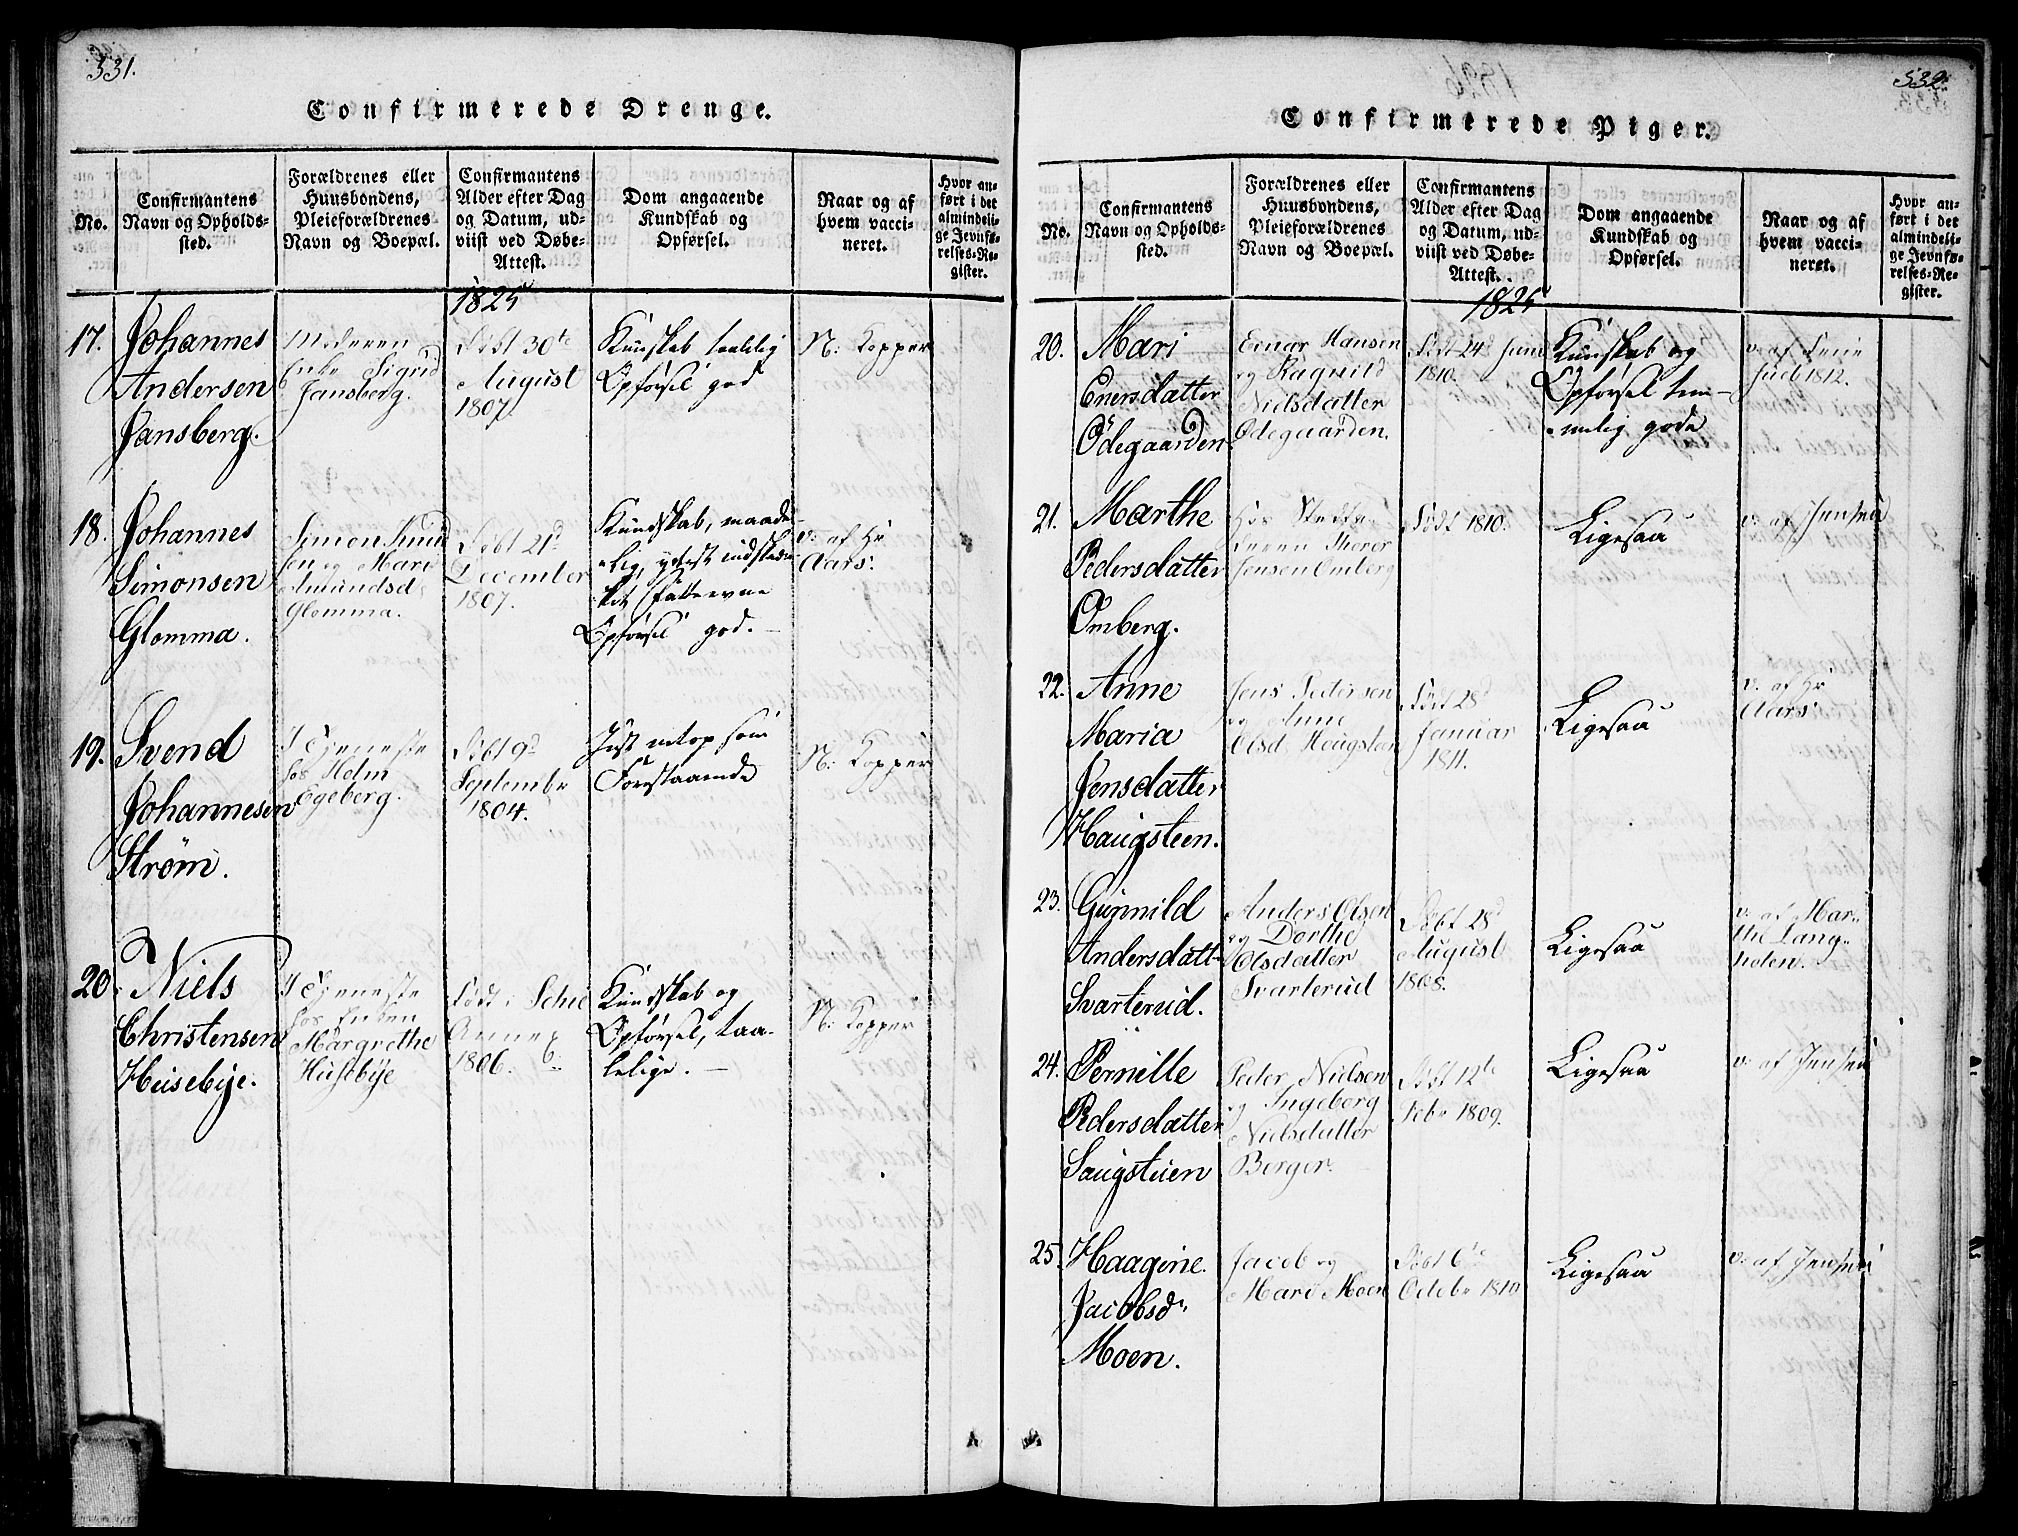 331.
Confirmerede Drenge.
No.
Confirmantens
Navn og Opholds-
sted.
Forældrenes eller
Huusbondens,
Pleieforældrenes
Navn og Boepæl.
Confirmantens
Alder efter Dag
og Datum, ud-
viist ved Døbe-
Attest.
Dom angaaende
Kundskab og
Opførsel.
Naar og af
hvem vacci-
neret.
Hvor an-
ført i det
almindeli-
ge Jevnfø-
relses-Re-
gister.
1825
17.
Johannes
Andersen
Jansberg.
Moderen
Enke Sigrid
Jansberg.
Født 30te
August
1807
Kundskab taalelig
Opførsel god
N: Kopper
18.
Johannes
Simonsen
Glomma.
Simon Knud
sen og Mari
Amundsd
Glomma.
Døbt 21d
December
1807.
Kundskab, maade-
lig, yderst indskræn
ket Fatteevne
Opførsel god.
v. af Hr
Aars.
19.
Svend
Johannesen
Strøm.
I Tjeneste
hos Holm
Egeberg.
Døbt 9d
Septembr
1804.
Just netop som
Forestaaende
N: Kopper
20.
Niels
Christensen
Huusebye.
I Tjeneste
hos Enken
Margrethe
Husebye
Født i Schie
Annex
1806.
Kundskab og
Opførsel, taa-
lelige.
N: Kopper
532.
Confirmerede Piger.
No.
Confirmantens
Navn og Opholds-
sted.
Forældrenes eller
Huusbondens,
Pleieforældrenes
Navn og Boepæl.
Confirmantens
Alder efter Dag
og Datum, ud-
viist ved Døbe-
Attest.
Dom angaaende
Kundskab og
Opførsel.
Naar og af
hvem vacci-
neret.
Hvor an-
ført i det
almindeli-
ge Jevnfø-
relses-Re-
gister.
1825
20.
Mari
Enersdatter
Ödegaarden
Enar Hansen
og Ragnild
Nielsdatter
Ödegaarden.
Født 24d Juni
1810.
Kundskab og
Opførsel tem-
melig gode
v. af
1812.
21.
Marthe
Pedersdatter
Omberg.
Hos Stedfa-
deren Thorer
Jensen Omberg
Født 1810.
Ligesaa
v. af Jensen
22.
Anne
Maria
Jensdatter
Haugsteen.
Jens Pedersen
og Anne
Olsd Haugsteen
Født 28d
Januar
1811.
Ligesaa
v. af Hr
Aars
23.
Gunnild
Andersdatt
Svarterud.
Anders Olsen
og Dorthe
Olsdatter
Svarterud
Døbt 28d
August
1808.
Ligesaa
v. af Mar-
the Lang-
holen.
24.
Pernille
Pedersdatter
Saugstuen
Peder Nielsen
og Ingeborg
Nielsdatter
Berger.
Døbt 12te
Febr 1809.
Ligesaa
v. af Jensen
25.
Haagine
Jacobsdr
Moen.
Jacob og
Mari Moen
Døbt 6te
Octobr 1810
Ligesaa
v. af Jensen